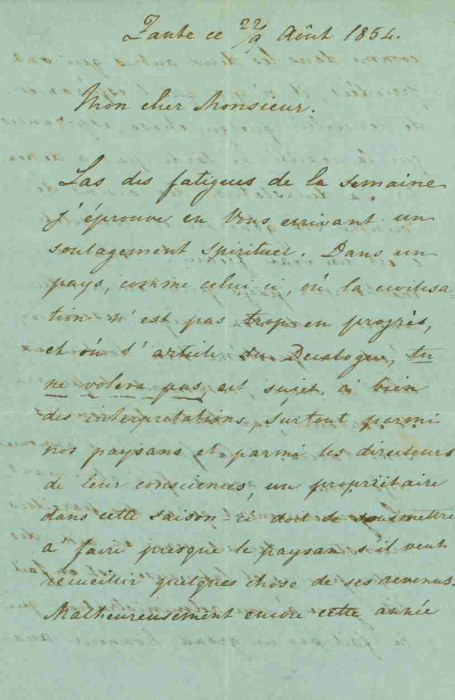 Zante ce 22/9 Août 1854.
Mon cher Monsieur.
Las des fatigues de la semaine
j'éprouve en vous ecrivant un
soulagement spirituel. Dans un
pays, comme celui ci, où la civilisa-
tion n'est pas trop en progrès,
et où l'article du Decalogue, tu
ne volera pas est sujet à bien
des interpretations, surtout parmi
nos paysans et parmi les directeurs
de leur consciences, un proprietaire
dans cette saison ci doit se soumettre
a faire presque le paysan s'il veut
recueillir quelques chose de ses revenus.
Malheureusement encore cette année